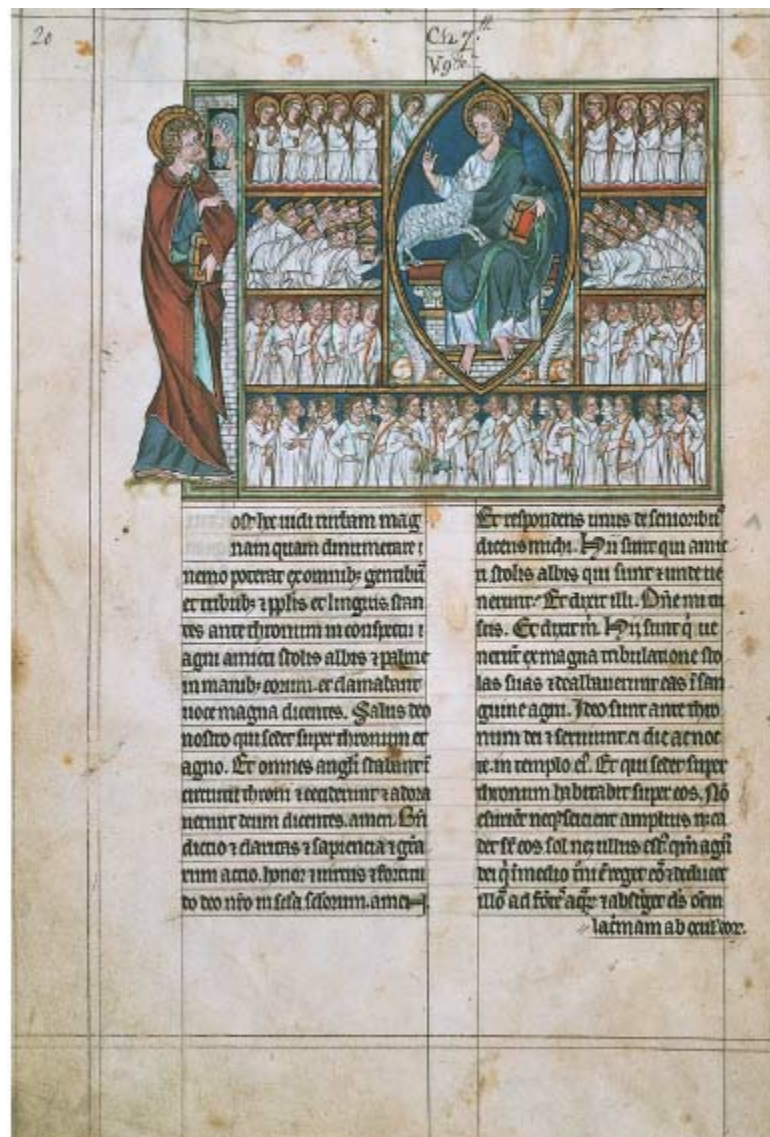 20
Ch 7.th
V. 9.th
ost hec uidi turbam mag
nam quam dinumerare
nemo poterat ex omnibꝫ gentibuſ
et tribubꝫ ⁊ pplis et linguis stan
tes ante thronum in conspectu
agni amicti stolis albis ⁊ palme
in manibꝫ eorum. et clamabant
uoce magna dicentes. Salus deo
nostro qui sedet super thronum et
agno. Et omnes angli stabant ī
circuitu throni ⁊ ceciderunt ⁊ adora
uerunt deum dicentes. amen. Bn̄
dictio ⁊ claritas ⁊ sapiencia ⁊ gr̄a
rum actio. honor ⁊ uirtus ⁊ fortitu
do deo nr̄o in scl̄a scl̄orum. amen
Et respondens unus de senioribuſ
dicens michi. Hii sunt qui amic
ti stolis albis qui sunt ⁊ unde ue
nerunt. Et dixit illi. Dn̄e mi tu
scis. Et dixit m̄. Hii sunt q̄ ue
nerūt ex magna tribulatione sto
las suas ⁊ dealbauerunt eas ī san
guine agni. Ideo sunt ante thro
num dei ⁊ seruiunt ei die ac noc
te. in templo eī. Et qui sedet super
thronum habitabit super eos. Nō
esurient neqꝫ scicient amplius n̄ ca
det sr̄ eos sol neqꝫ ullus estꝰ. qm̄ agn̄
dei q̄ ī medio
illos ad ⁊ absterget oēm
lac̄mam ab